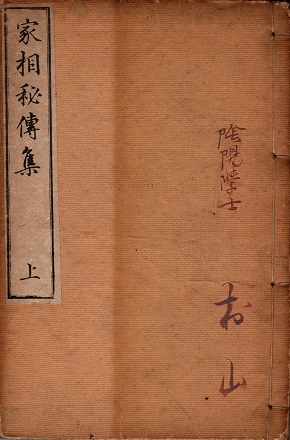 陰陽学士
村山
家相秘傳集
上